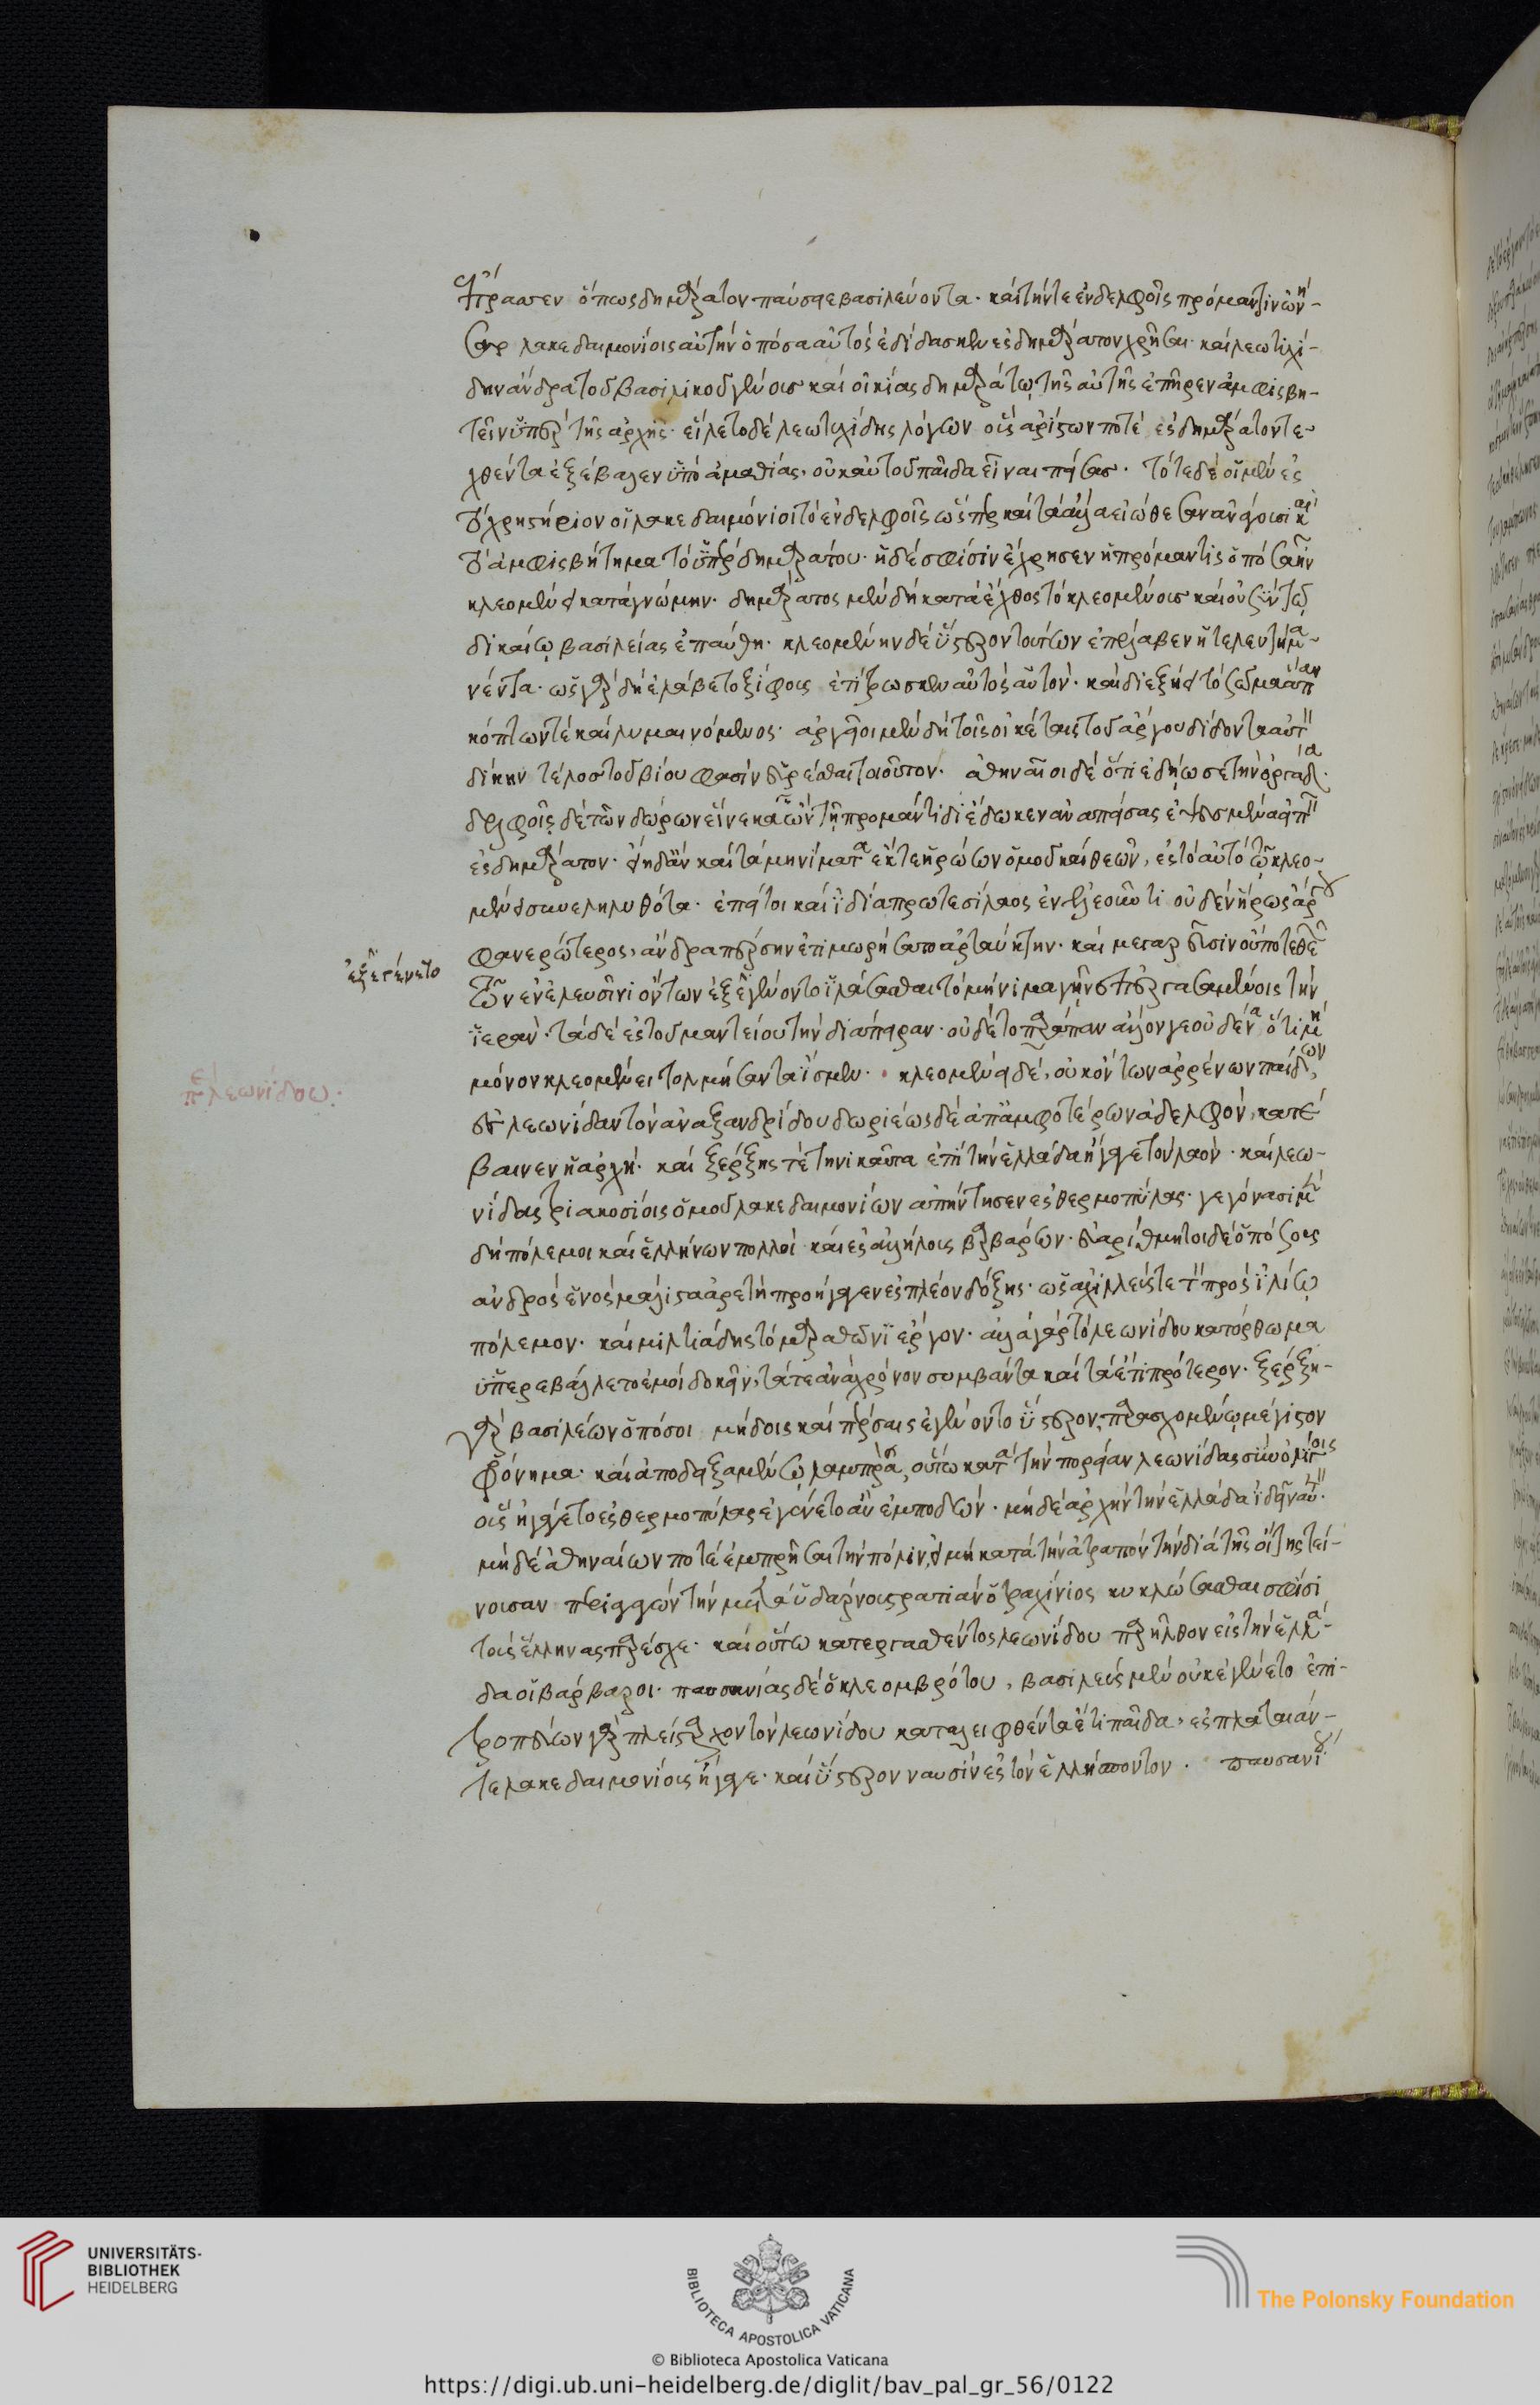 ἔπρασσεν ὅπως δημάρατον παύσειε βασιλεύοντα· καὶ τήν τε ἐν δελφοῖς πρόμαντιν ὠνή-
σατο λακεδαιμονίοις αὐτὴν ὁπόσα αὐτὸς ἐδίδασκεν ἐς δημάρατον χρῆσαι· καὶ λεωτιχί-
δην ἄνδρα τοῦ βασιλικοῦ γένους καὶ οἰκίας δημαράτῳ τῆς αὐτῆς ἐπῆρεν ἀμφισβη-
τεῖν ὑπὲρ τῆς ἀρχῆς· εἴχετο δὲ λεωτιχίδης λόγων οὓς ἀρίστων ποτὲ ἐς δημάρατον τε-
χθέντα ἐξέβαλεν ὑπὸ ἀμαθίας, οὐκ αὐτοῦ παῖδα εἶναι φήσας. τότε δὲ οἱ μὲν ἐς
τὸ χρηστήριον οἱ λακεδαιμόνιοι τὸ ἐν δελφοῖς ὥσπερ καὶ τὰ ἄλλα εἰώθεσαν ἀνάγουσι καὶ
τὸ ἀμφισβήτημα τὸ ὑπὲρ δημαράτου· ἡ δέ σφισιν ἔχρησεν ἡ πρόμαντις ὁπόσα ἦν
κλεομένει κατὰ γνώμην· δημάρατος μὲν δὴ κατὰ ἔχθος τὸ κλεομένους καὶ οὐ σὺν τῷ
δικαίῳ βασιλείας ἐπαύθη· κλεομένην δὲ ὕστερον τούτων ἐπέλαβεν ἡ τελευτὴ μα-
νέντα· ὡς γὰρ δὴ ἐλάβετο ξίφους ἐτίτρωσκεν αὐτὸς αὑτόν· καὶ διεξῄει τὸ σῶμα ἅπαν
κόπτων τὲ καὶ λυμαινόμενος· ἀργεῖοι μὲν δὴ τοῖς οἰκέταις τοῦ ἄργου διδόντα αὐτὸν
δίκην τέλος τοῦ βίου φασὶν εὑρέσθαι τοιοῦτον. ἀθηναῖοι δὲ ὅτι ἐδῄωσε τὴν ὀργάδα·
δελφοῖς δὲ τῶν δώρων εἵνεκα ὧν τῇ προμάντιδι ἔδωκεν ἀναπείσας ἐψευσμένα εἰπεῖν
ἐς δημάρατον· εἴη δ' ἂν καὶ τὰ μηνίματα ἔκ τε ἡρώων ὁμοῦ καὶ θεῶν, ἐς τὸ αὐτὸ τῷ κλεο-
μένει συνεληλυθότα· ἐπεί τοι καὶ ἰδίᾳ πρωτεσίλαος ἐν ἐλεοῦντι οὐδὲν ἥρως ἀργοῦ
φανερώτερος, ἄνδρα πέρσην ἐτιμωρήσατο ἀρταΰκτην· καὶ μεγαρεῦσιν οὔποτε θεῶν
τῶν ἐν ἐλευσῖνι ὄντων ἐξεγένοντο ἱλάσασθαι τὸ μήνιμα γῆν ἐπεργασαμένοις τὴν
ἱεράν· τὰ δὲ ἐς τοῦ μαντείου τὴν διάπειραν· οὐδὲ τοπαράπαν ἄλλον γε οὐδένα, ὅτι μὴ
μόνον κλεομένει τολμήσαντα ἴσμεν· κλεομένει δέ, οὐκ ὄντων ἀρρένων παίδων,
ἐς λεωνίδαν τὸν ἀναξανδρίδου δωριέως δὲ ἀπ' ἀμφοτέρων ἀδελφὸν, κατέ-
βαινεν ἡ ἀρχή· καὶ ξέρξης τὲ τηνικαῦτα ἐπὶ τὴν ἑλλάδα ἤγαγε τὸν λαόν· καὶ λεω-
νίδας τριακοσίοις ὁμοῦ λακεδαιμονίων ἀπήντησεν ἐς θερμοπύλας· γεγόνασι μὲν
δὴ πόλεμοι καὶ ἑλλήνων πολλοὶ καὶ ἐς ἀλλήλους βαρβάρων· εὐαρίθμητοι δὲ ὁπόσους
ἀνδρὸς ἑνὸς μάλιστα ἀρετὴ προήγαγεν ἐς πλέον δόξης· ὡς ἀχιλλεύς τε τὸν πρὸς ἰλίῳ
πόλεμον· καὶ μιλτιάδης τὸ μαραθῶνι ἔργον· ἀλλὰ γὰρ τὸ λεωνίδου κατόρθωμα
ὑπερεβάλλετο ἐμοὶ δοκεῖν, τά τε ἀνὰ χρόνον συμβάντα καὶ τὰ ἔτι πρότερον· ξέρξῃ-
γὰρ βασιλέων ὁπόσοι μήδοις καὶ πέρσαις ἐγένοντο ὕστερον, παρασχομένῳ μέγιστον
φρόνημα· καὶ ἀποδειξαμένῳ λαμπρὰ, οὕτω κατὰ τὴν πορείαν λεωνίδας σὺν ὀλίγοις
οὓς ἠγάγετο ἐς θερμοπύλας ἐγένετο ἂν ἐμποδών· μηδὲ ἀρχὴν τὴν ἑλλάδα ἰδεῖν αὐτὸν·
μηδὲ ἀθηναίων ποτὲ ἐμπρῆσαι τὴν πόλιν, εἰ μὴ κατὰ τὴν ἀτραπὸν τὴν διὰ τῆς οἴτης τεί-
νουσαν περιαγαγὼν τὴν μετὰ ὑδάρνου στρατιὰν ὁ τραχίνιος κυκλώσασθαι σφίσι
τοὺς ἕλληνας παρέσχε· καὶ οὕτω κατεργασθέντος λεωνίδου παρῆλθον εἰς τὴν ἑλλά-
δα οἱ βάρβαροι. παυσανίας δὲ ὁ κλεομβρότου, βασιλεὺς μὲν οὐκ ἐγένετο ἐπι-
τροπεύων γὰρ πλείσταρχον τὸν λεωνίδου καταλειφθέντα ἔτι παῖδα, ἐς πλάταιάν-
τε λακεδαιμονίους ἤγαγε· καὶ ὕστερον ναυσὶν ἐς τὸν ἑλλήσποντον. παυσανίου
ἐξεγένετο
π λεωνίδου·
UNIVERSITÄTS-
BIBLIOTHEK
HEIDELBERG
BIBLIOTECA APOSTOLICA VATICANA
The Polonsky Foundation
© Biblioteca Apostolica Vaticana
https://digi.ub.uni-heidelberg.de/diglit/bav_pal_gr_56/0122